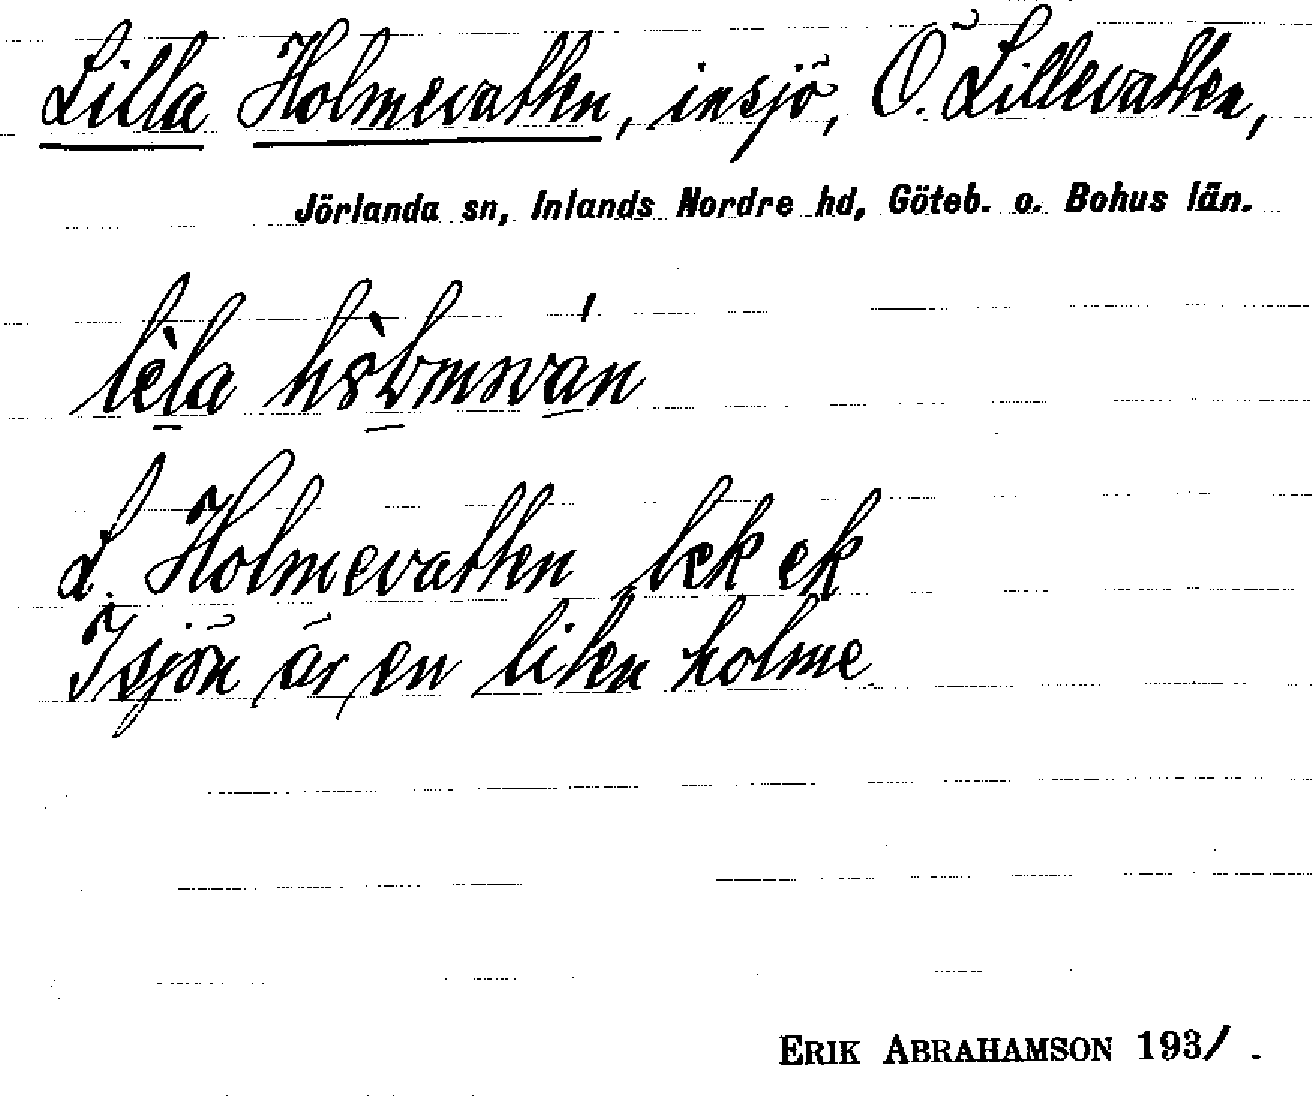 Lilla Holmevatten, insjö, Ö. Lillevatten,
Jörlanda sn, Inlands Nordre hd, Göteb. o. Bohus län.
lèla
L. Holmevatten bek ek
I sjön är en liten holme
ERIK ABRAHAMSON 1931.